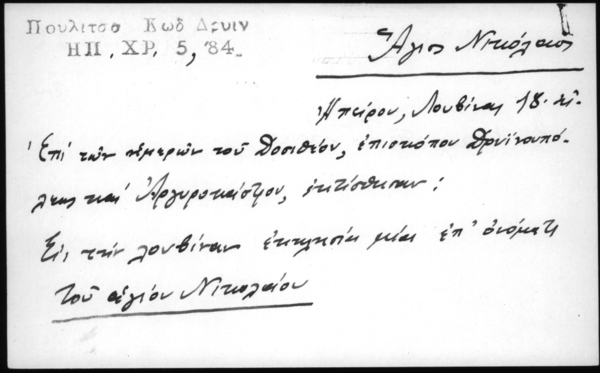 Πουλιτσα Κωδ Δρυιν
ΗΠ. ΧΡ. 5, '84.
Ἅγιος Νικόλαος
Ἠπείρου, Λουβίνας 18.
Ἐπί τῶν ἡμερῶν τοῦ Δοσιθέου, ἐπισκόπου Δρυϊνουπό-
λεως καί Ἀργυροκάστρου, ἐκτίσθησαν:
Εἰς τήν Λουβίναν ἐκκλησία μία ἐπ' ὀνόματι
τοῦ ἁγίου Νικολαίου